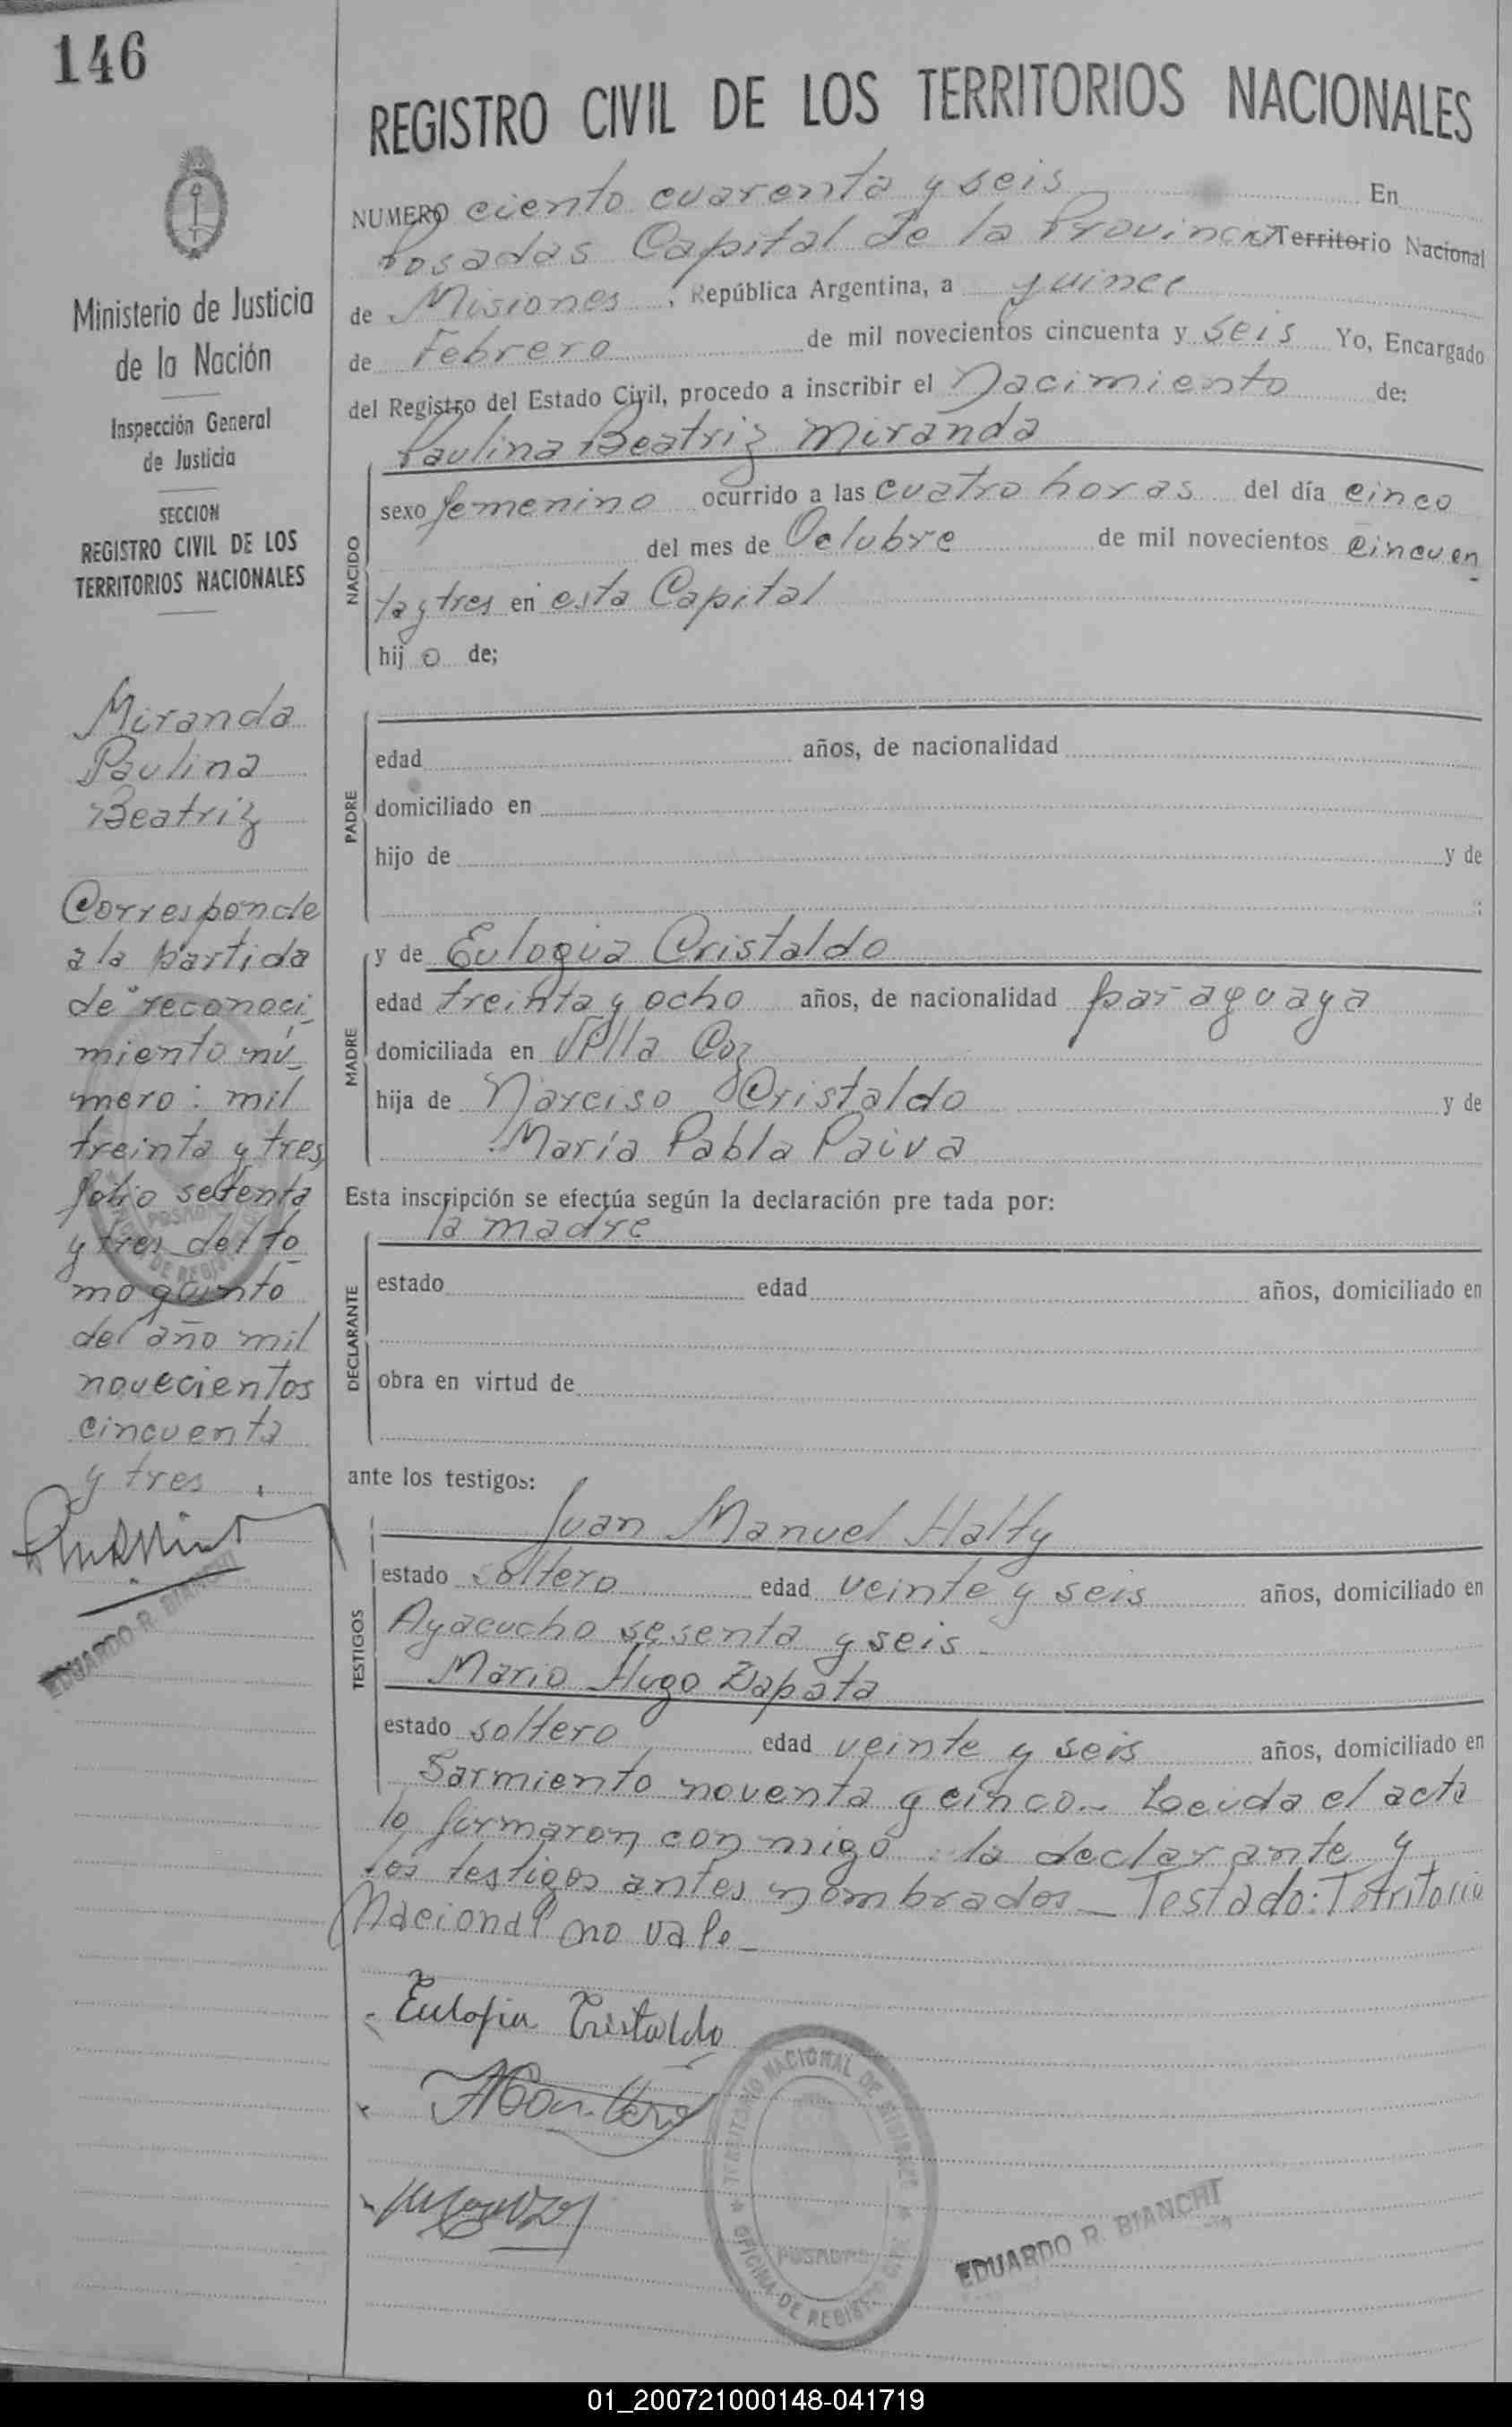 146
REGISTRO CIVIL DE LOS TERRITORIOS NACIONALES
NUMERO ciento cuarenta y seis En
Posadas Capital de la Provincia Territorio Nacional
de Misiones, República Argentina, a quince
de Febrero de mil novecientos cincuenta y seis Yo, Encargado
del Registro del Estado Civil, procedo a inscribir el Nacimiento de:
Paulina Beatriz Miranda
NACIDO
sexo femenino ocurrido a las cuatro horas del día cinco
del mes de Octubre de mil novecientos cincuen
ta y tres en esta Capital
hijo de;
PADRE
edad años, de nacionalidad
domiciliado en
hijo de y de
MADRE
y de Eulogia Cristaldo
edad treinta y ocho años, de nacionalidad paraguaya
domiciliada en Villa Coz
hija de Narciso Cristaldo y de
María Pabla Paiva
Esta inscripción se efectúa según la declaración pre tada por:
la madre
DECLARANTE
estado edad años, domiciliado en
obra en virtud de
ante los testigos:
TESTIGOS
Juan Manuel Halty
estado soltero edad veinte y seis años, domiciliado en
Ayacucho sesenta y seis
Mario Hugo Zapata
estado soltero edad veinte y seis años, domiciliado en
Sarmiento noventa y cinco_ Leida el acta
la firmaron conmigo la declarante y
los testigos antes nombrados_ Testado: Territorio
Nacional no vale_
Eulogia Cristaldo
TERRITORIO NACIONAL DE MISIONES
POSADAS
OFICINA DE REGISTRO CIVIL
EDUARDO R. BIANCHI
Ministerio de Justicia
de la Nación
Inspección General
de Justicia
SECCION
REGISTRO CIVIL DE LOS
TERRITORIOS NACIONALES
Miranda
Paulina
Beatriz
Corresponde
a la partida
de reconoci
miento nú
mero: mil
treinta y tres
folio setenta
y tres del to
mo quinto
del año mil
novecientos
cincuenta
y tres.
EDUARDO R. BIANCHI
01_200721000148-041719